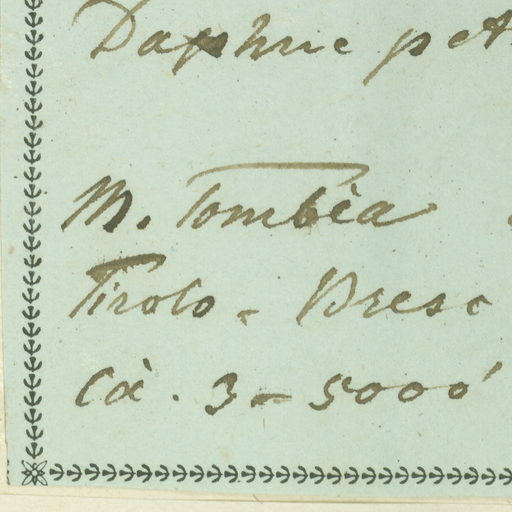 Daphne pet
M. Tombea
Tirolo - Bresc
Cà. 3-5000'